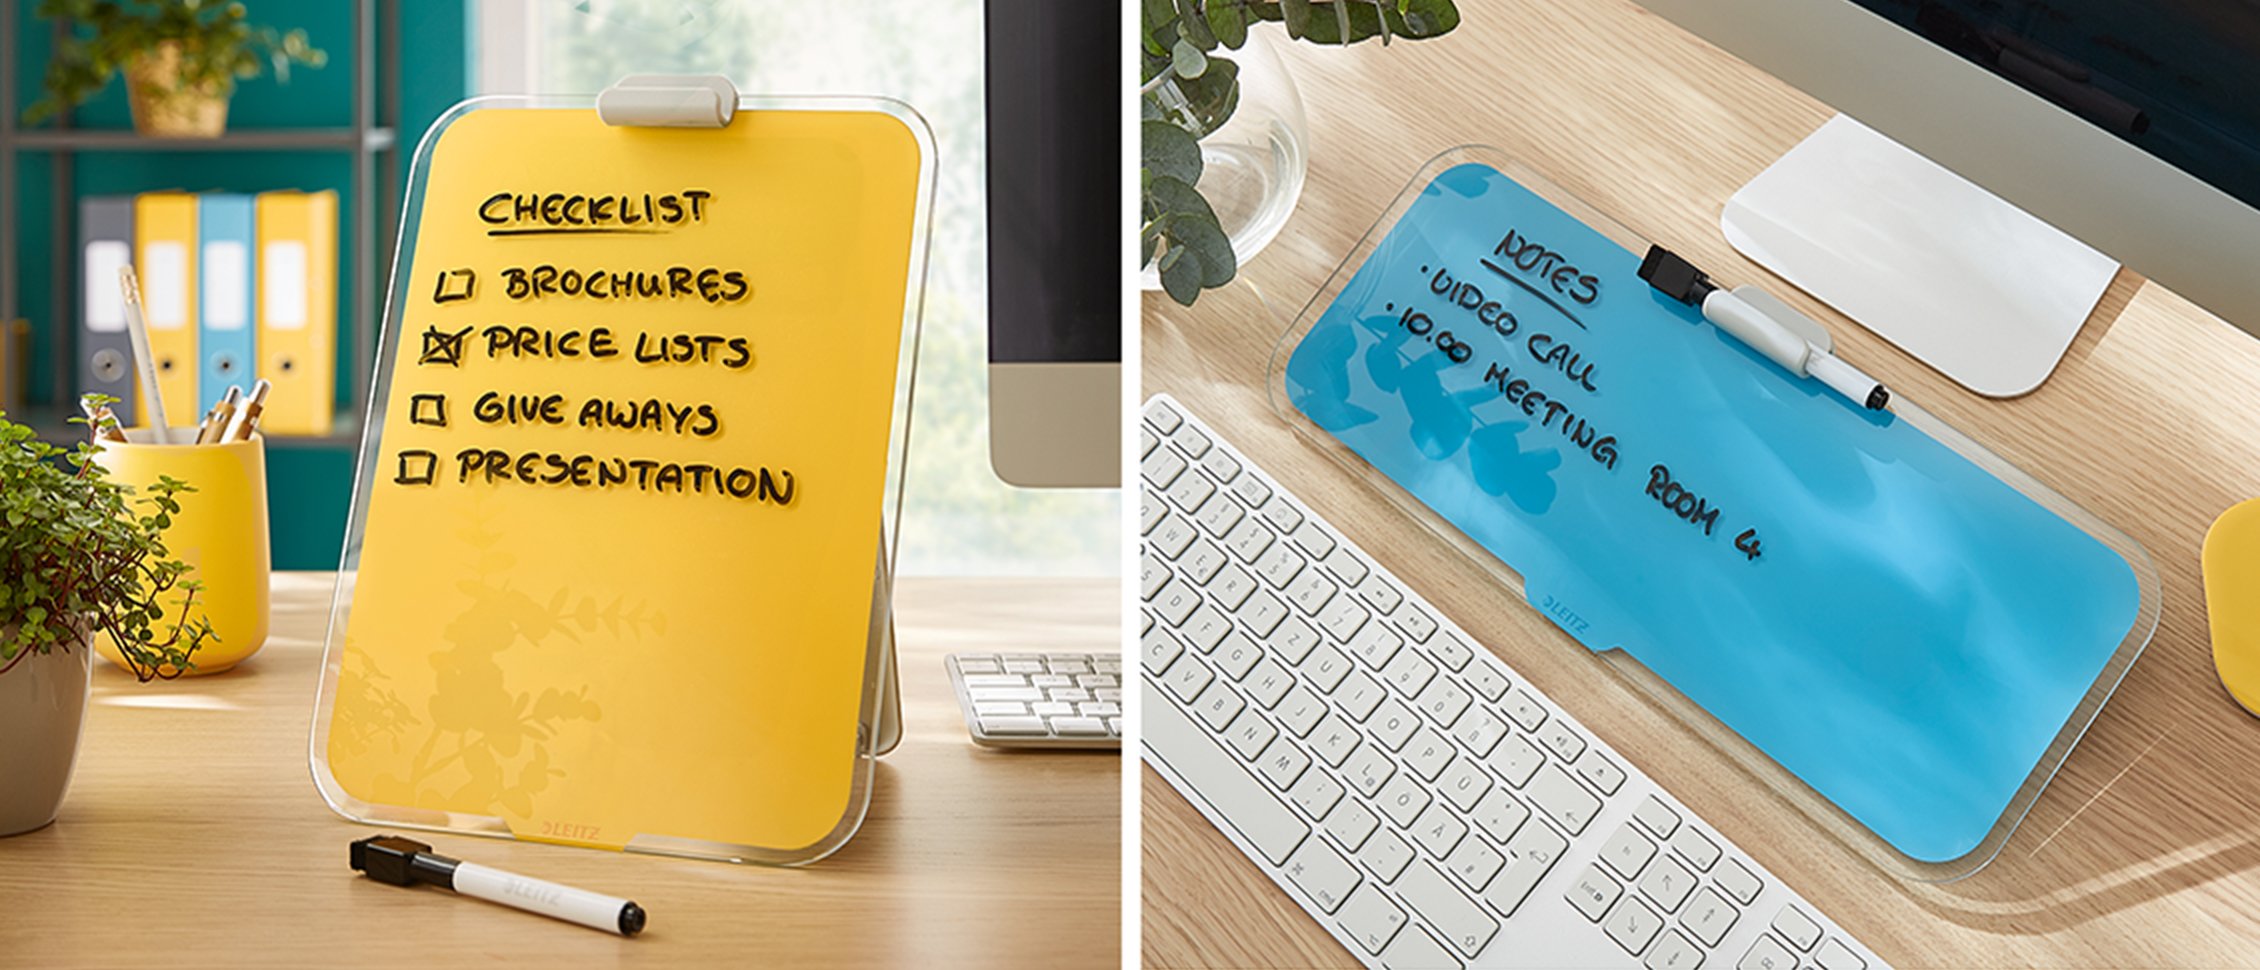 CHECKLIST
BROCHURES
PRICE LISTS
GIVE AWAYS
PRESENTATION
LEITZ
LEITZ
NOTES
• VIDEO CALL
• 10.00 MEETING ROOM 4
LEITZ